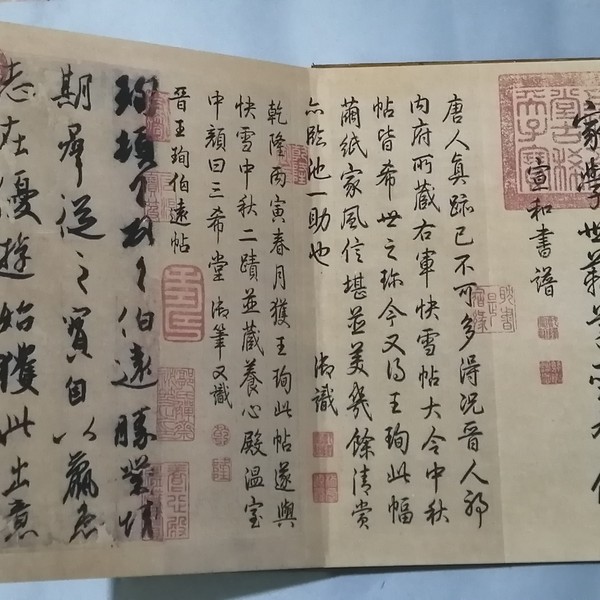 家學世範草聖有傳
宣和書譜
唐人真跡已不可多得況晉人耶
內府所藏右軍快雪帖大令中秋
帖皆希世之珍今又得王珣此幅
繭紙家風信堪並美幾餘清賞
亦臨池一助也 御識
乾隆丙寅春月獲王珣此帖遂與
快雪中秋二蹟並藏養心殿溫室
中顏曰三希堂 御筆又識
乾隆
晉王珣伯遠帖
珣頓首頓首伯遠勝業情
期群從之寶自以羸患
志在優遊始獲此出意